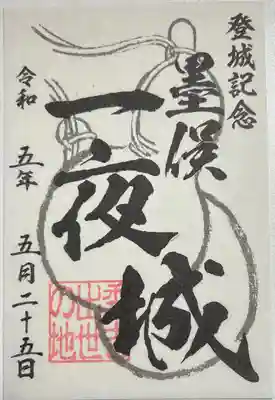 登城記念
墨俣
一夜城
秀吉
出世
の地
令和
五年
五月二十五日